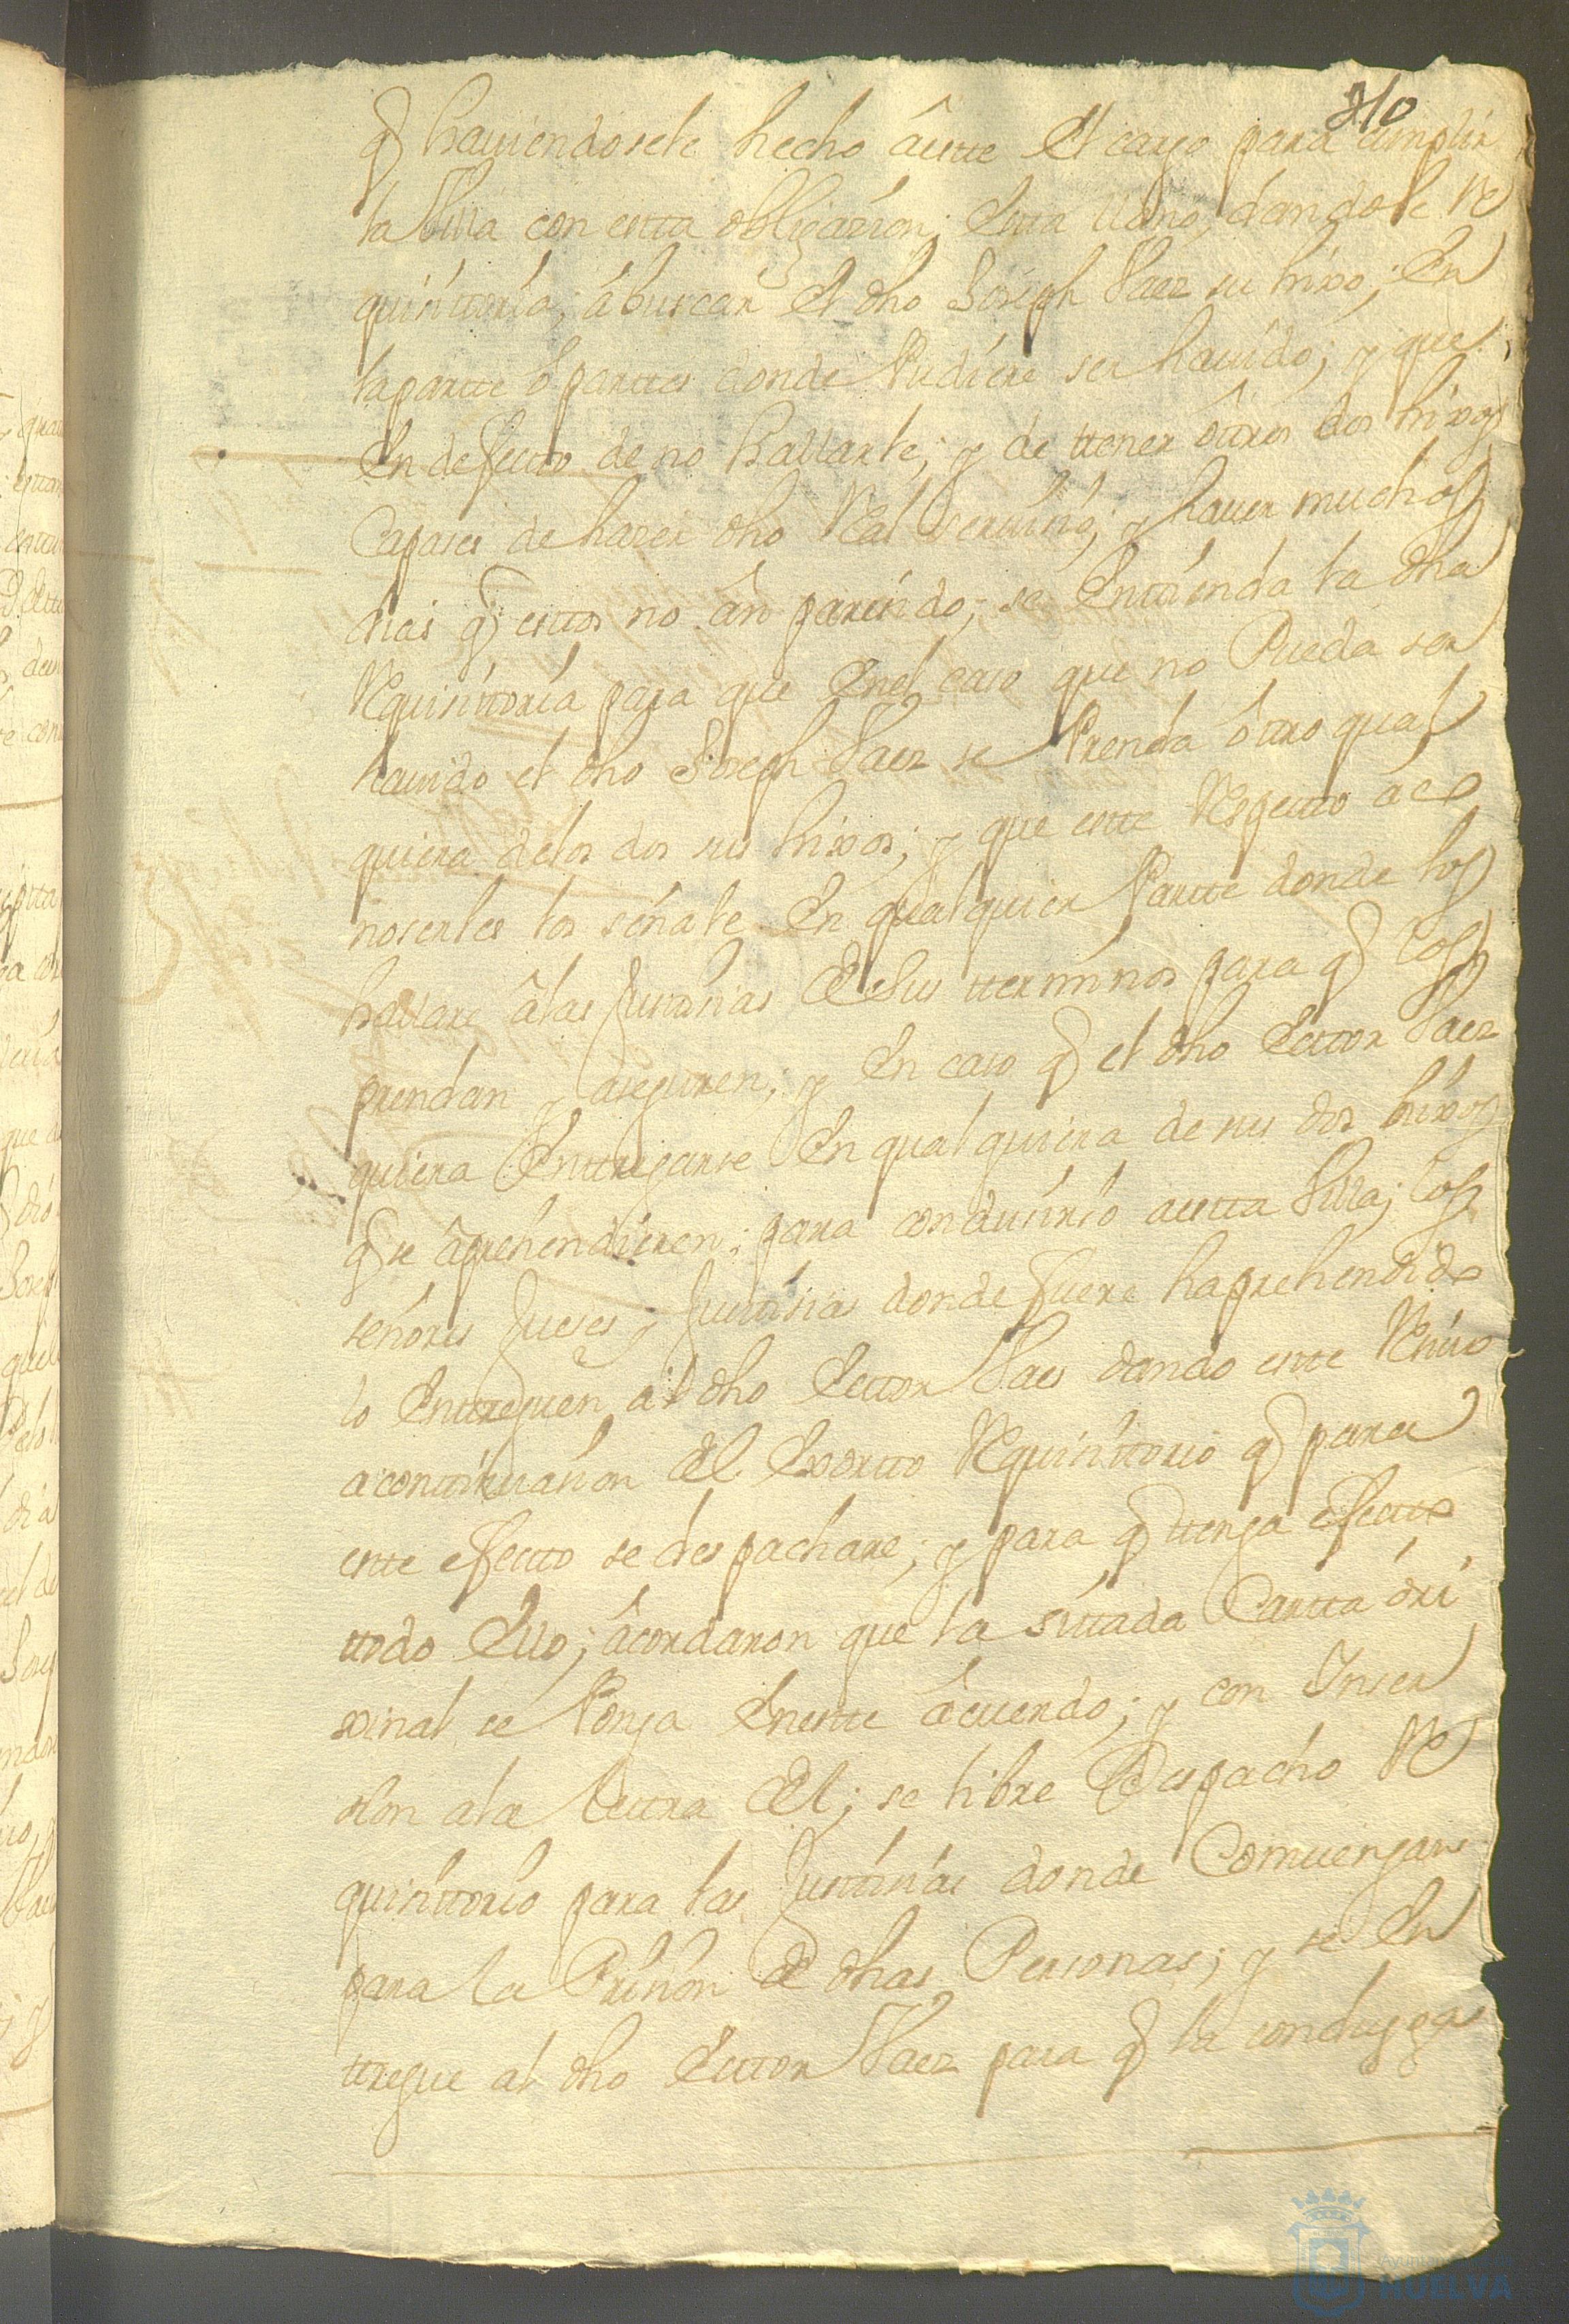 210
q haviendosele hecho âeste El cargo para cumplir
la Villa con esta obligazion, Esta llano, dandole Re
quisittoria, á buscar El dho Joseph Saez su hixo; En
la parte ô partes donde Pudiere ser havido; y que
En defecto de no hallarle; y de ttener ôtros dos hixos
Capases de hazer dho Real serviisio; y haver muchos
dias q estos no ân paresido; se Entienda la dha
Requisittoria para que Enel caso que no Pueda ser
havido el dho Joseph Saez se Prenda ôtro qual
quiera delos dos sus hixos; y que este Respecto âco
noserles los señale En qualquier Partte donde los
hallare âlas Justisias de sus tterminos para q los
prendan y aseguren; y En caso q el dho Ector Saez
quiera Enttregarse En qualquiera de sus dos hixos
q se âprehendieren; para condusirlo a esta Villa; los
señores Jueses y Justisias donde fuere haprehendido
lo Enttreguen al dho Ector Saes dando este Resivo
a conttinuasion del Exortto Requisittorio q para
este efecto se despachare; y para q ttenga efectto
ttodo Ello; âcordaron que la sittada Cartta ôri
xinal se Ponga Eneste âcuerdo; y con Inser
sion ala Lettra del; se libre Despacho Re
quisittorio para las Justisias donde Comvengan
para la Prision de dhas Personas; y se En
ttregue al dho Ector Saez para q la conduzga
Ayuntamiento de
HUELVA